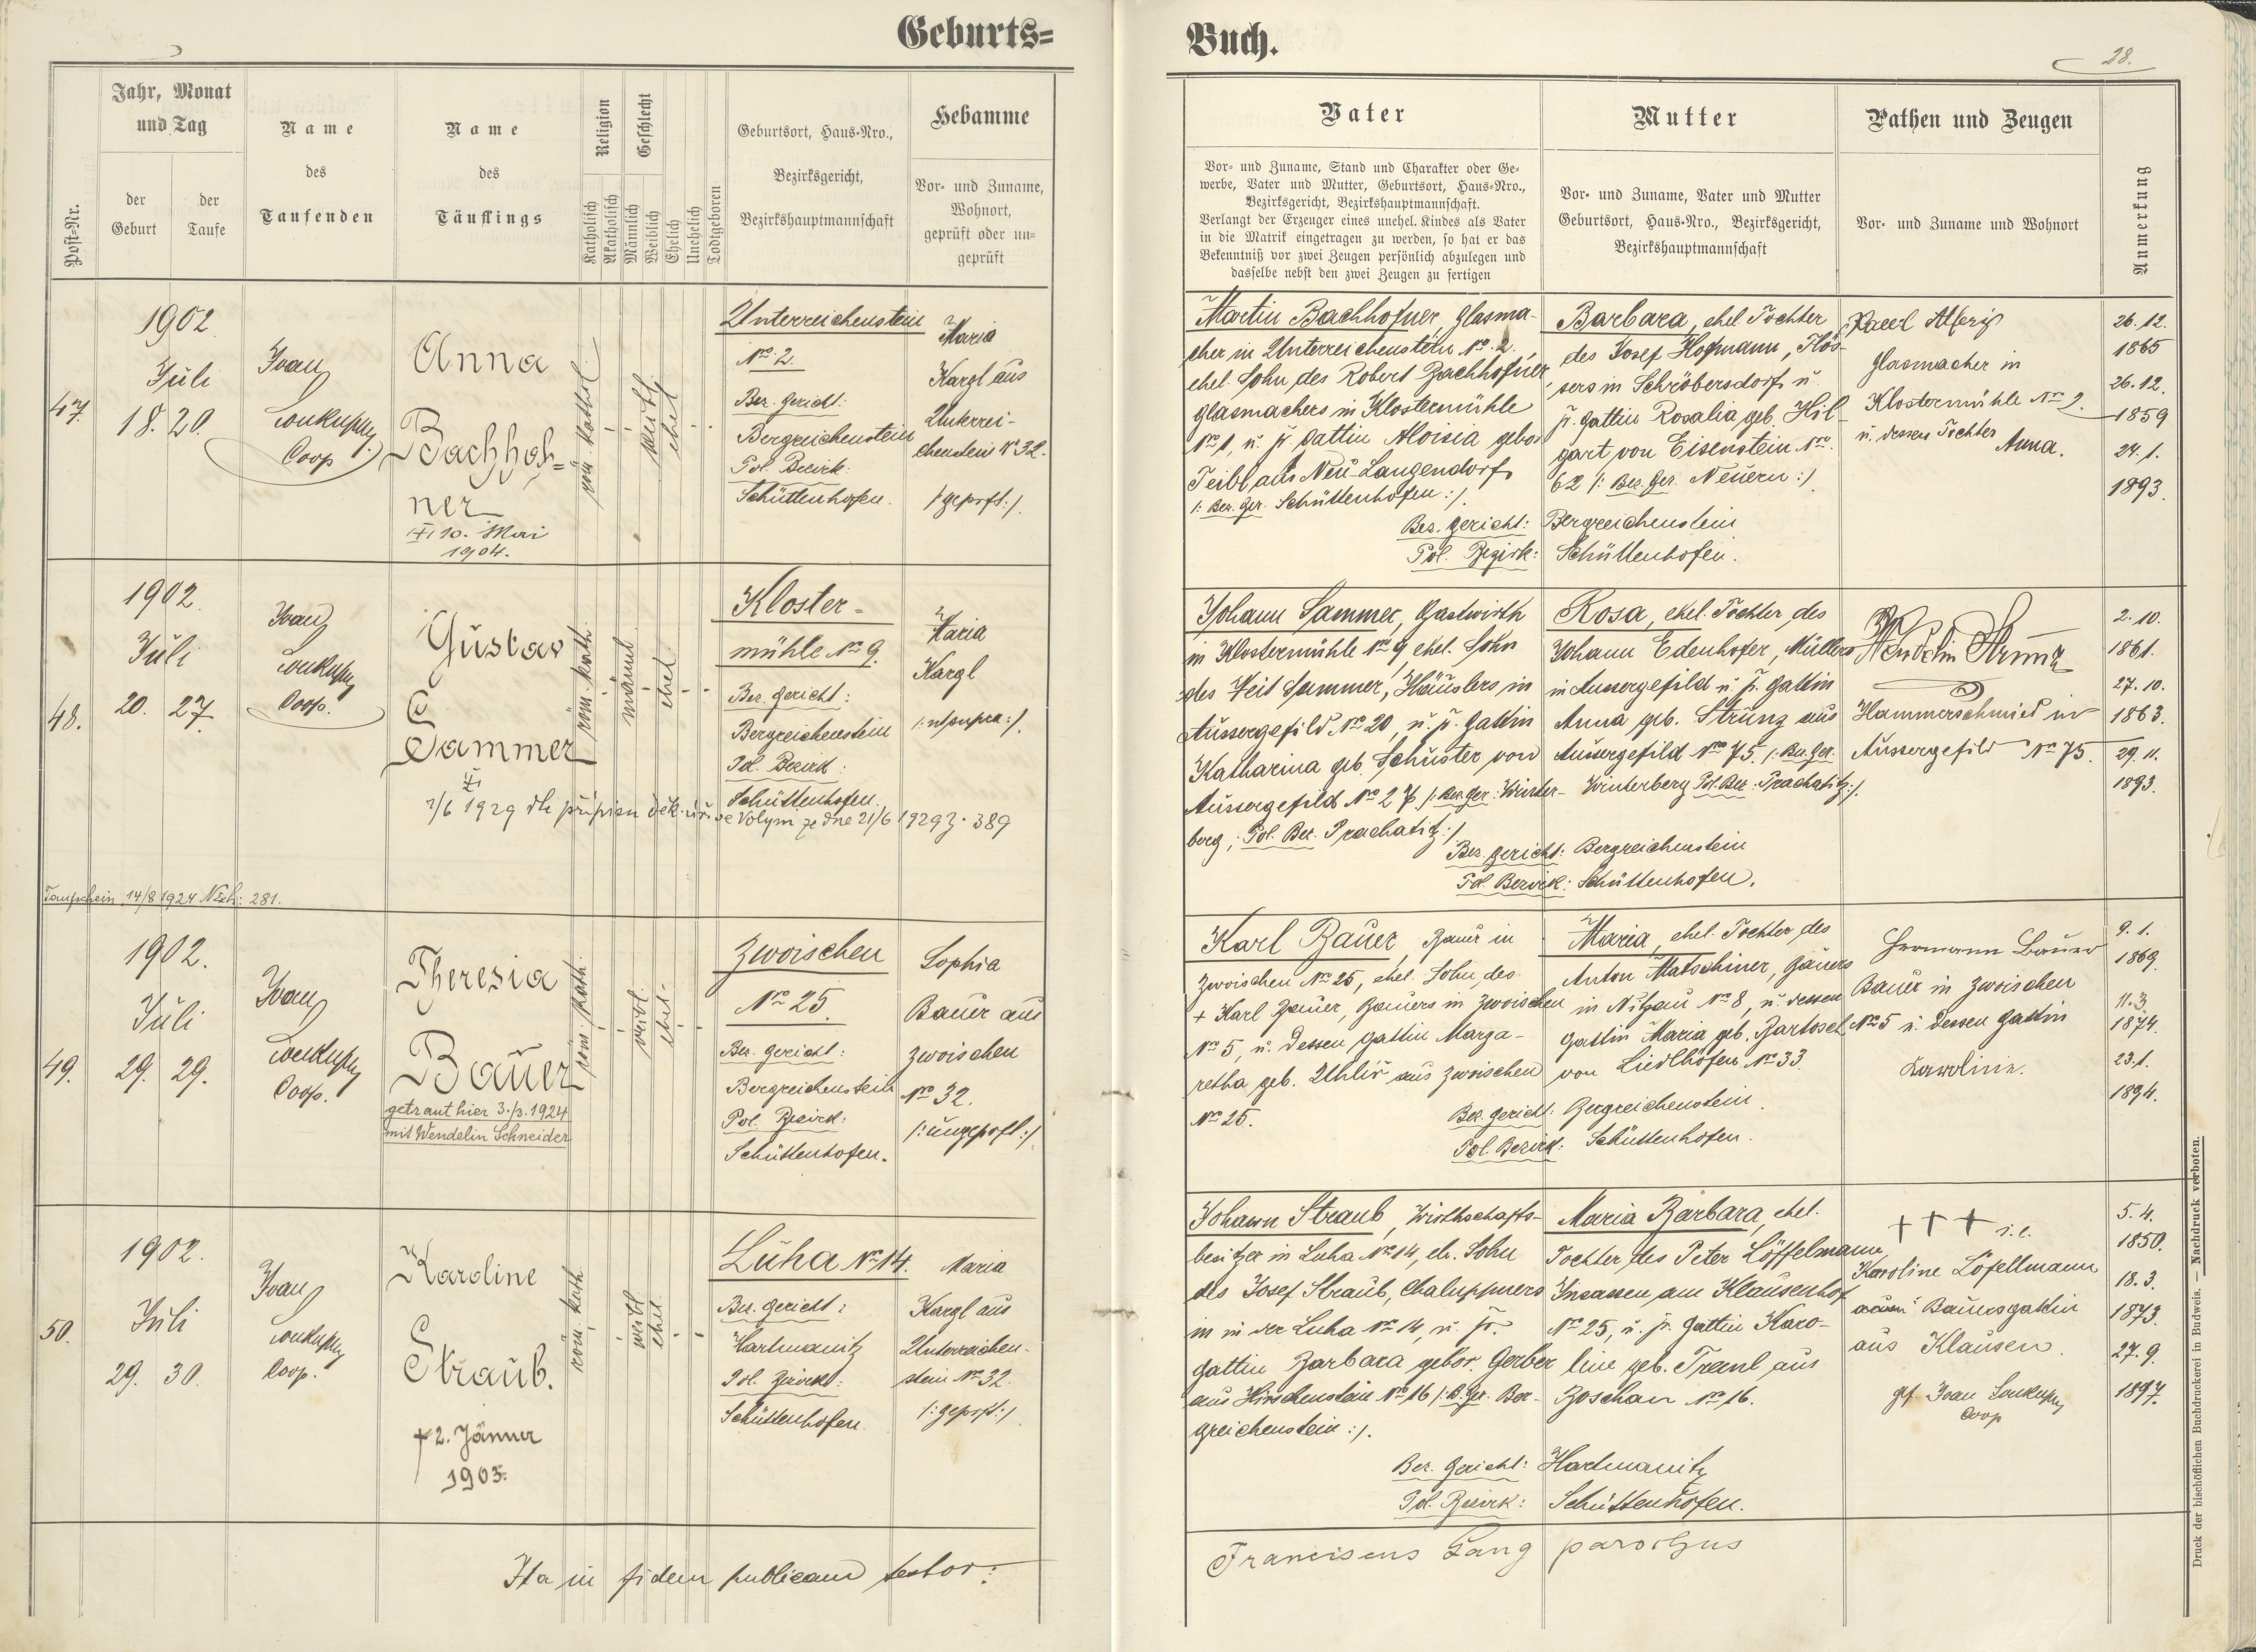 Geburts=
Buch.
28.
Post-Nr.
Jahr, Monat
und Tag
der
Geburt
der
Taufe
Name
des
Taufenden
Name
des
Täuflings
Religion
Katholisch
Akatholisch
Geschlecht
Männlich
Weiblich
Ehelich
Unehelich
Todtgeboren
Geburtsort, Haus-Nro.,
Bezirksgericht,
Bezirkshauptmannschaft
Hebamme
Vor- und Zuname,
Wohnort,
geprüft oder un-
geprüft
Vater
Vor- und Zuname, Stand und Charakter oder Ge-
werbe, Vater und Mutter, Geburtsort, Haus-Nro.,
Bezirksgericht, Bezirkshauptmannschaft.
Verlangt der Erzeuger eines unehel. Kindes als Vater
in die Matrik eingetragen zu werden, so hat er das
Bekenntniß vor zwei Zeugen persönlich abzulegen und
dasselbe nebst den zwei Zeugen zu fertigen
Mutter
Vor- und Zuname, Vater und Mutter
Geburtsort, Haus-Nro., Bezirksgericht,
Bezirkshauptmannschaft
Pathen und Zeugen
Vor- und Zuname und Wohnort
Anmerkung
47.
1902
Juli
18. 20.
Ivan
Soukupy
Coop
Anna
Bachhof=
ner
10. Mai
1904.
röm. kathol.
weibl.
ehel.
Unterreichenstein
No 2.
Bez. Gericht:
Bergreichenstein
Pol. Bezirk:
Schüttenhofen.
Maria
Kargl aus
Unterrei-
chenstein No 32.
/:geprft:/.
Martin Bachhofner, Glasma-
cher in Unterreichenstein No. 2,
ehel. Sohn des Robert Bachhofner
Glasmachers in Klostermühle
No 1, u. fr. Gattin Aloisia gebor.
Teibl aus Neu-Langendorf
/: Bez. Ger. Schüttenhofen :/.
Barbara, ehel. Tochter
des Josef Hofmann, Flös-
sers in Schröbersdorf u.
fr. Gattin Rosalia geb. Hil-
gart von Eisenstein No.
62 /: Bez. Ger. Neuern :/
Bez. Gericht: Bergreichenstein
Pol. Bezirk: Schüttenhofen.
Glasmacher in
Klostermühle No 2.
u. dessen Tochter
Anna.
26. 12.
1865
26. 12.
1859
24. 1.
1893.
48.
1902.
Juli
20. 27.
Ivan
Soukupy
Coop.
Gustav
Sammer
röm. kath.
männl.
ehel.
Kloster-
mühle No 9.
Bez. Gericht:
Bergreichenstein
Pol. Bezirk:
Schüttenhofen.
Maria
Kargl
/: ut supra :/.
1929 dle přípisu děk. úřu ve Volyni ze dne 21/6 1929 z. 389
Taufschein 14/8 1924 Nexh: 281.
Johann Sammer, Gastwirth
in Klostermühle No 9, ehel. Sohn
des Veit Sammer, Häuslers in
Aussergefild No 20, u. fr. Gattin
Katharina geb. Schuster von
Aussergefild No 27 /: Bez. Ger.: Winter-
berg; Pol. Bez. Prachatitz :/
Rosa, ehel. Tochter des
Johann Edenhofer, Müllers
in Aussergefild u. fr. Gattin
Anna geb. Strunz aus
Aussergefild No 75. /: Bez. Ger.
Winterberg Pol. Bez.: Prachatitz :/.
Bez. Gericht: Bergreichenstein
Pol. Bezirk: Schüttenhofen.
Wendelin Strunz
Hammerschmied in
Aussergefild No 75.
2. 10.
1861.
27. 10.
1863.
29. 11.
1893.
49.
1902.
Juli
29. 29.
Ivan
Soukupy
Coop.
Theresia
Bauer
getraut hier 3./3. 1924
mit Wendelin Schneider
röm. kath.
weibl.
ehel.
Zwoischen
No 25.
Bez. Gericht:
Bergreichenstein
Pol. Bezirk:
Schüttenhofen.
Sophia
Bauer aus
Zwoischen
No 32.
/: ungeprft :/
Karl Bauer, Bauer in
Zwoischen No 25, ehel. Sohn des
+ Karl Bauer, Bauers in Zwoischen
No 5, u. dessen Gattin Marga-
retha geb. Uhlíř aus Zwoischen
No 25.
Maria, ehel. Tochter des
Anton Matschiner, Bauers
in Nitzau No 8, u. dessen
Gattin Maria geb. Bartosch
von Liedlhöfen No 33.
Bez. Gericht: Bergreichenstein.
Pol. Bezirk: Schüttenhofen.
Hermann Bauer
Bauer in Zwoischen
No 5 u. dessen Gattin
Karolina.
9. 1.
1869.
11. 3.
1874.
23. 1.
1894.
50.
1902.
Juli
29. 30.
Ivan
Soukupy
Coop.
Karoline
Straub.
† 2. Jänner
1903.
röm. kath.
weibl.
ehel.
Luha No 14.
Bez. Gericht:
Hartmanitz
Pol. Bezirk:
Schüttenhofen
Maria
Kargl aus
Unterreichen-
stein No 32.
/: geprft :/
Johann Straub, Wirthschafts-
besitzer in Luha No 14, eh. Sohn
des Josef Straub, Chaluppners
in in der Luha No 14, u. fr.
Gattin Barbara gebor. Gerber
aus Hirschenstein No 16 /: B. Ger. Ber-
greichenstein :/.
Maria Barbara, ehel.
Tochter des Peter Löffelmann,
Insassen am Klausenhof
No 25, u. fr. Gattin Karo-
line geb. Traxl aus
Boschan No 16.
Bez. Gericht: Hartmanitz
Pol. Bezirk: Schüttenhofen.
+ + + i. e.
Karoline Löfellmann
Bauersgattin
aus Klausen.
gf Ivan Soukupy
Coop
5. 4.
1850.
18. 3.
1873.
27. 9.
1897.
Ita in fidem publicam testor:
Franciscus Lang parochus
Druck der bischöflichen Buchdruckerei in Budweis. — Nachdruck verboten.